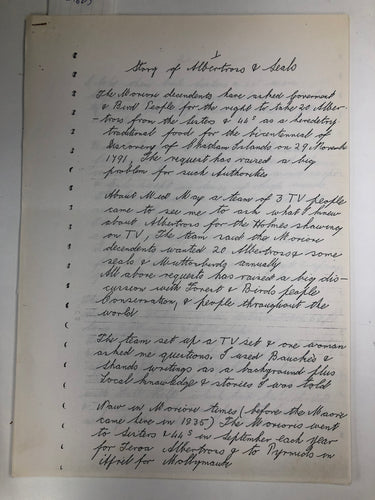 1
Story of Albertross & Seals
The Moriori decendents have asked Goverment
& Bird People for the right to take 20 Alber-
-tross from the sisters & 44s as a heredetry
traditional food for the bicentennial of
Discovery of Chatham Islands on 29 November
1791, The request has raised a big
problem for such Authorities
About Mid May a team of 3 TV people
came to see me to ask what I knew
about Albertross for the Holmes showing
on TV, The team said the Moriori
decendents wanted 20 Albertross & some
seals & Muttonbirds annually
All above requests has raised a big dis-
cussion with Forest & Birds people
Conservation, & people throughout the
world
The team set up a TV set & one woman
asked me questions, I used Bauckes &
Shands writings as a background plus
Local knowledge & stories I was told
Now in Moriori times (before the Maori
came here in 1835) The Morioris went
to sisters & 44s in September each year
for Albertross & to Pyrmids in
April for Mollymawks